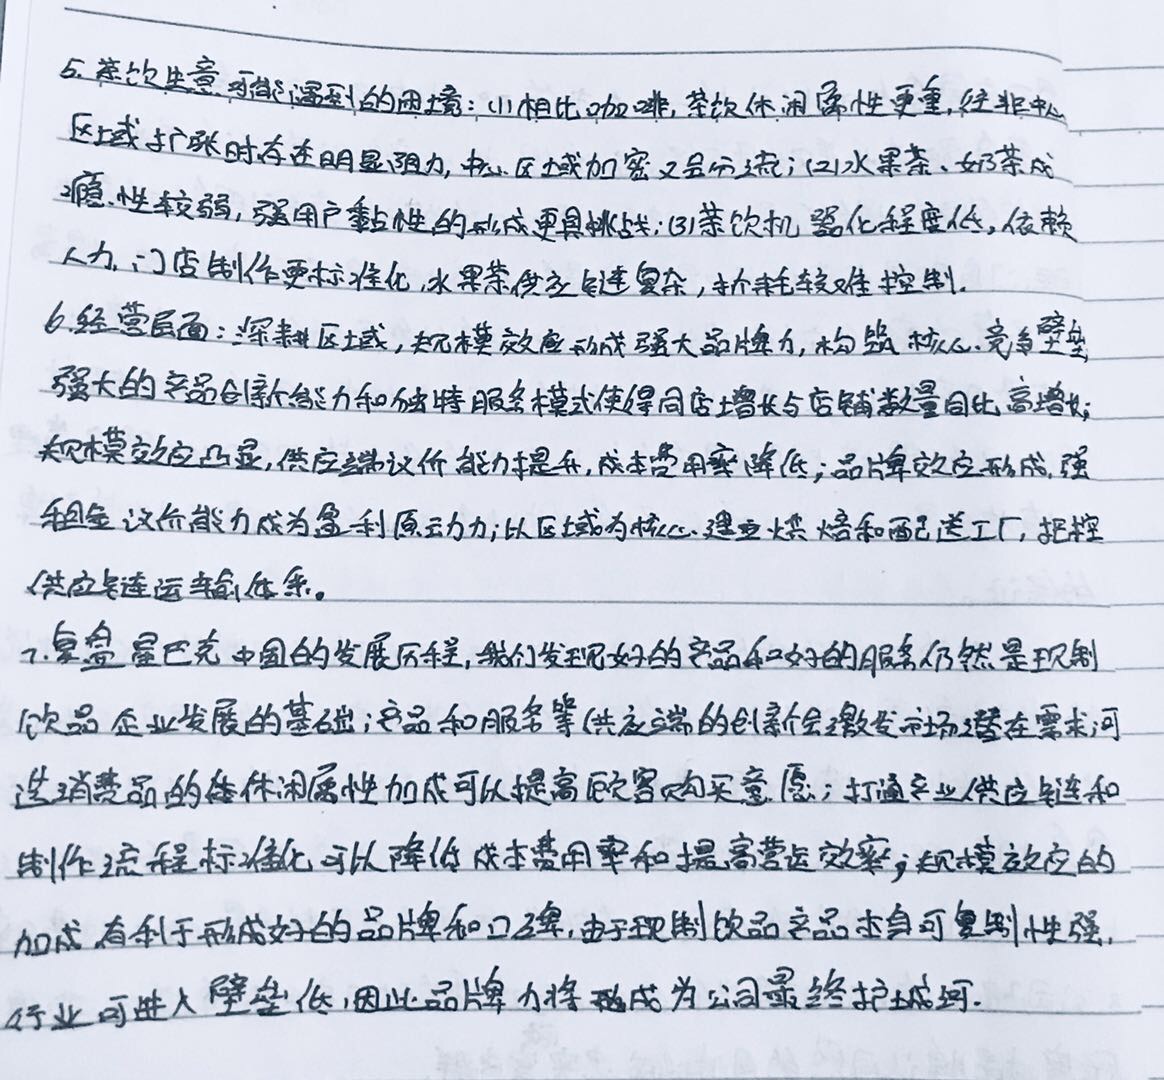 5.茶饮生意可能遇到的困境：(1)相比咖啡，茶饮休闲属性更重，往非中心
区域扩张时存在明显阻力，核心区域加密又会分流；(2)水果茶、奶茶成
瘾性较弱，强用户黏性的形成更具挑战；(3)茶饮机器化程度低，依赖
人力，门店制作更标准化，水果茶供应链复杂，折耗较难控制.
6.经营层面：深耕区域，规模效应形成强大品牌力，构筑核心竞争壁垒
强大的产品创新能力和独特服务模式使得同店增长与店铺数量同比高增长；
规模效应凸显，供应端议价能力提升，成本费用率降低；品牌效应形成，强
租金议价能力成为盈利原动力；以区域为核心建立烘焙和配送工厂，把控
供应链运输体系。
7.复盘星巴克中国的发展历程，我们发现好的产品和好的服务仍然是现制
饮品企业发展的基础；产品和服务等供应端的创新会激发市场潜在需求，可
选消费品的休闲属性加成可以提高顾客购买意愿；打通产业供应链和
制作流程标准化可以降低成本费用率和提高营运效率；规模效应的
加成有利于形成好的品牌和口碑，由于现制饮品产品本身可复制性强，
行业可进入壁垒低，因此品牌力将形成为公司最终护城河.